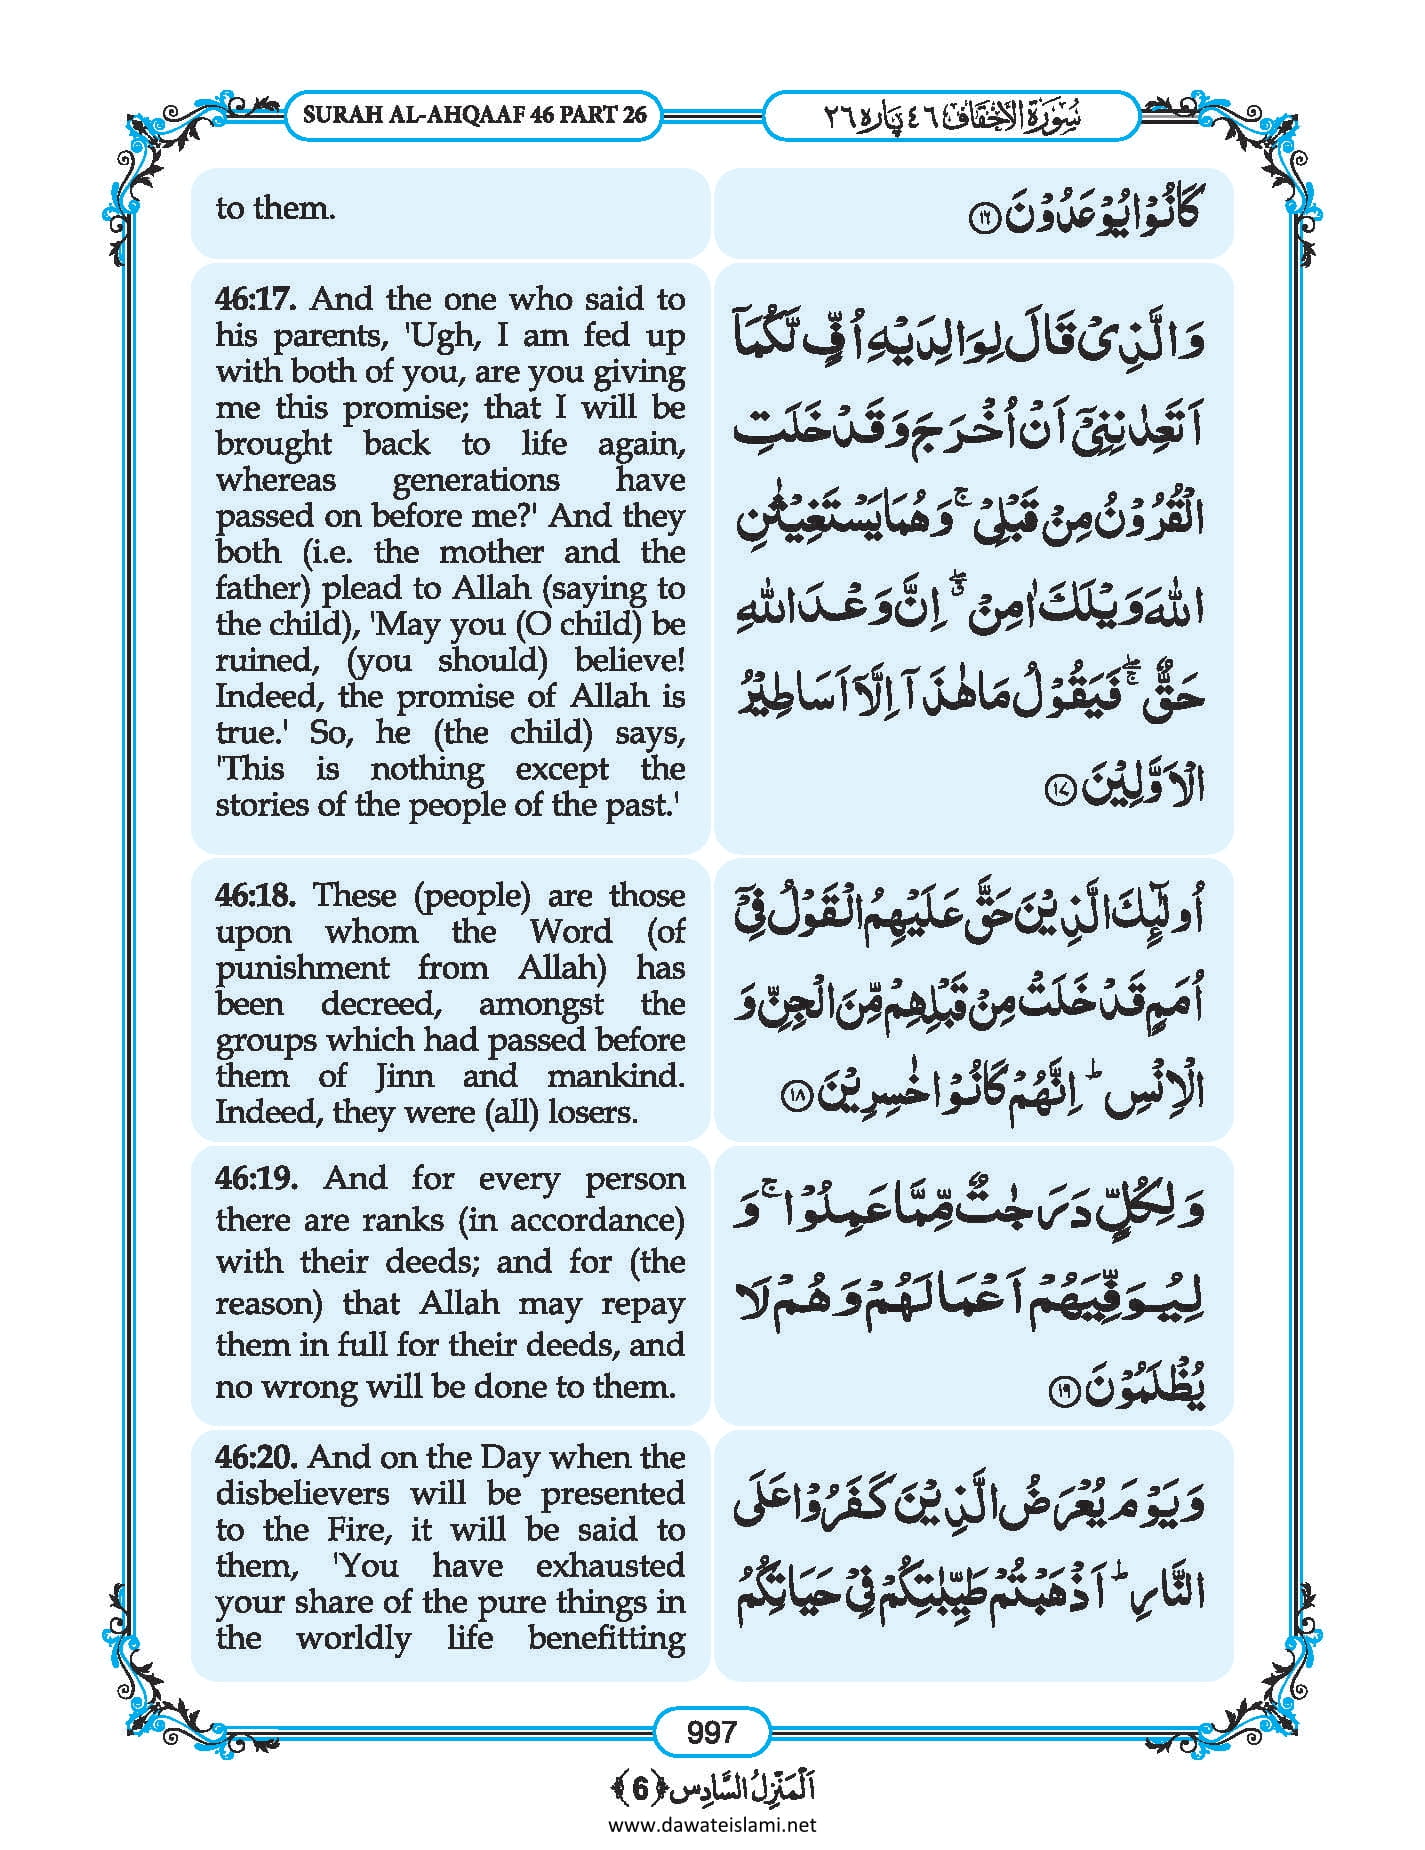 SURAH AL-AHQAAF 46 PART 26
سُوۡرَةُ الۡاَحۡقَاف ٤٦ پارہ ٢٦
to them.
كَانُوۡا يُوۡعَدُوۡنَ ﴿۱۶﴾
46:17. And the one who said to
his parents, 'Ugh, I am fed up
with both of you, are you giving
me this promise; that I will be
brought back to life again,
whereas generations have
passed on before me?' And they
both (i.e. the mother and the
father) plead to Allah (saying to
the child), 'May you (O child) be
ruined, (you should) believe!
Indeed, the promise of Allah is
true.' So, he (the child) says,
'This is nothing except the
stories of the people of the past.'
وَ الَّذِیۡ قَالَ لِوَالِدَیۡهِ اُفٍّ لَّكُمَاۤ
اَتَعِدٰنِنِیۡۤ اَنۡ اُخۡرَجَ وَ قَدۡ خَلَتِ
الۡقُرُوۡنُ مِنۡ قَبۡلِیۡ ۚ وَ هُمَا یَسۡتَغِیۡثٰنِ
اللّٰهَ وَیۡلَكَ اٰمِنۡ ٭ۖ اِنَّ وَعۡدَ اللّٰهِ
حَقٌّ ۚۖ فَیَقُوۡلُ مَا هٰذَاۤ اِلَّاۤ اَسَاطِیۡرُ
الۡاَوَّلِیۡنَ ﴿۱۷﴾
46:18. These (people) are those
upon whom the Word (of
punishment from Allah) has
been decreed, amongst the
groups which had passed before
them of Jinn and mankind.
Indeed, they were (all) losers.
اُولٰٓئِكَ الَّذِیۡنَ حَقَّ عَلَیۡهِمُ الۡقَوۡلُ فِیۡۤ
اُمَمٍ قَدۡ خَلَتۡ مِنۡ قَبۡلِهِمۡ مِّنَ الۡجِنِّ وَ
الۡاِنۡسِ ؕ اِنَّهُمۡ كَانُوۡا خٰسِرِیۡنَ ﴿۱۸﴾
46:19. And for every person
there are ranks (in accordance)
with their deeds; and for (the
reason) that Allah may repay
them in full for their deeds, and
no wrong will be done to them.
وَ لِكُلٍّ دَرَجٰتٌ مِّمَّا عَمِلُوۡا ۚ وَ
لِیُوَفِّیَهُمۡ اَعۡمَالَهُمۡ وَ هُمۡ لَا
یُظۡلَمُوۡنَ ﴿۱۹﴾
46:20. And on the Day when the
disbelievers will be presented
to the Fire, it will be said to
them, 'You have exhausted
your share of the pure things in
the worldly life benefitting
وَ یَوۡمَ یُعۡرَضُ الَّذِیۡنَ كَفَرُوۡا عَلَی
النَّارِ ؕ اَذۡهَبۡتُمۡ طَیِّبٰتِكُمۡ فِیۡ حَیَاتِكُمُ
997
اَلۡمَنۡزِلُ السَّادِس ﴿6﴾
www.dawateislami.net